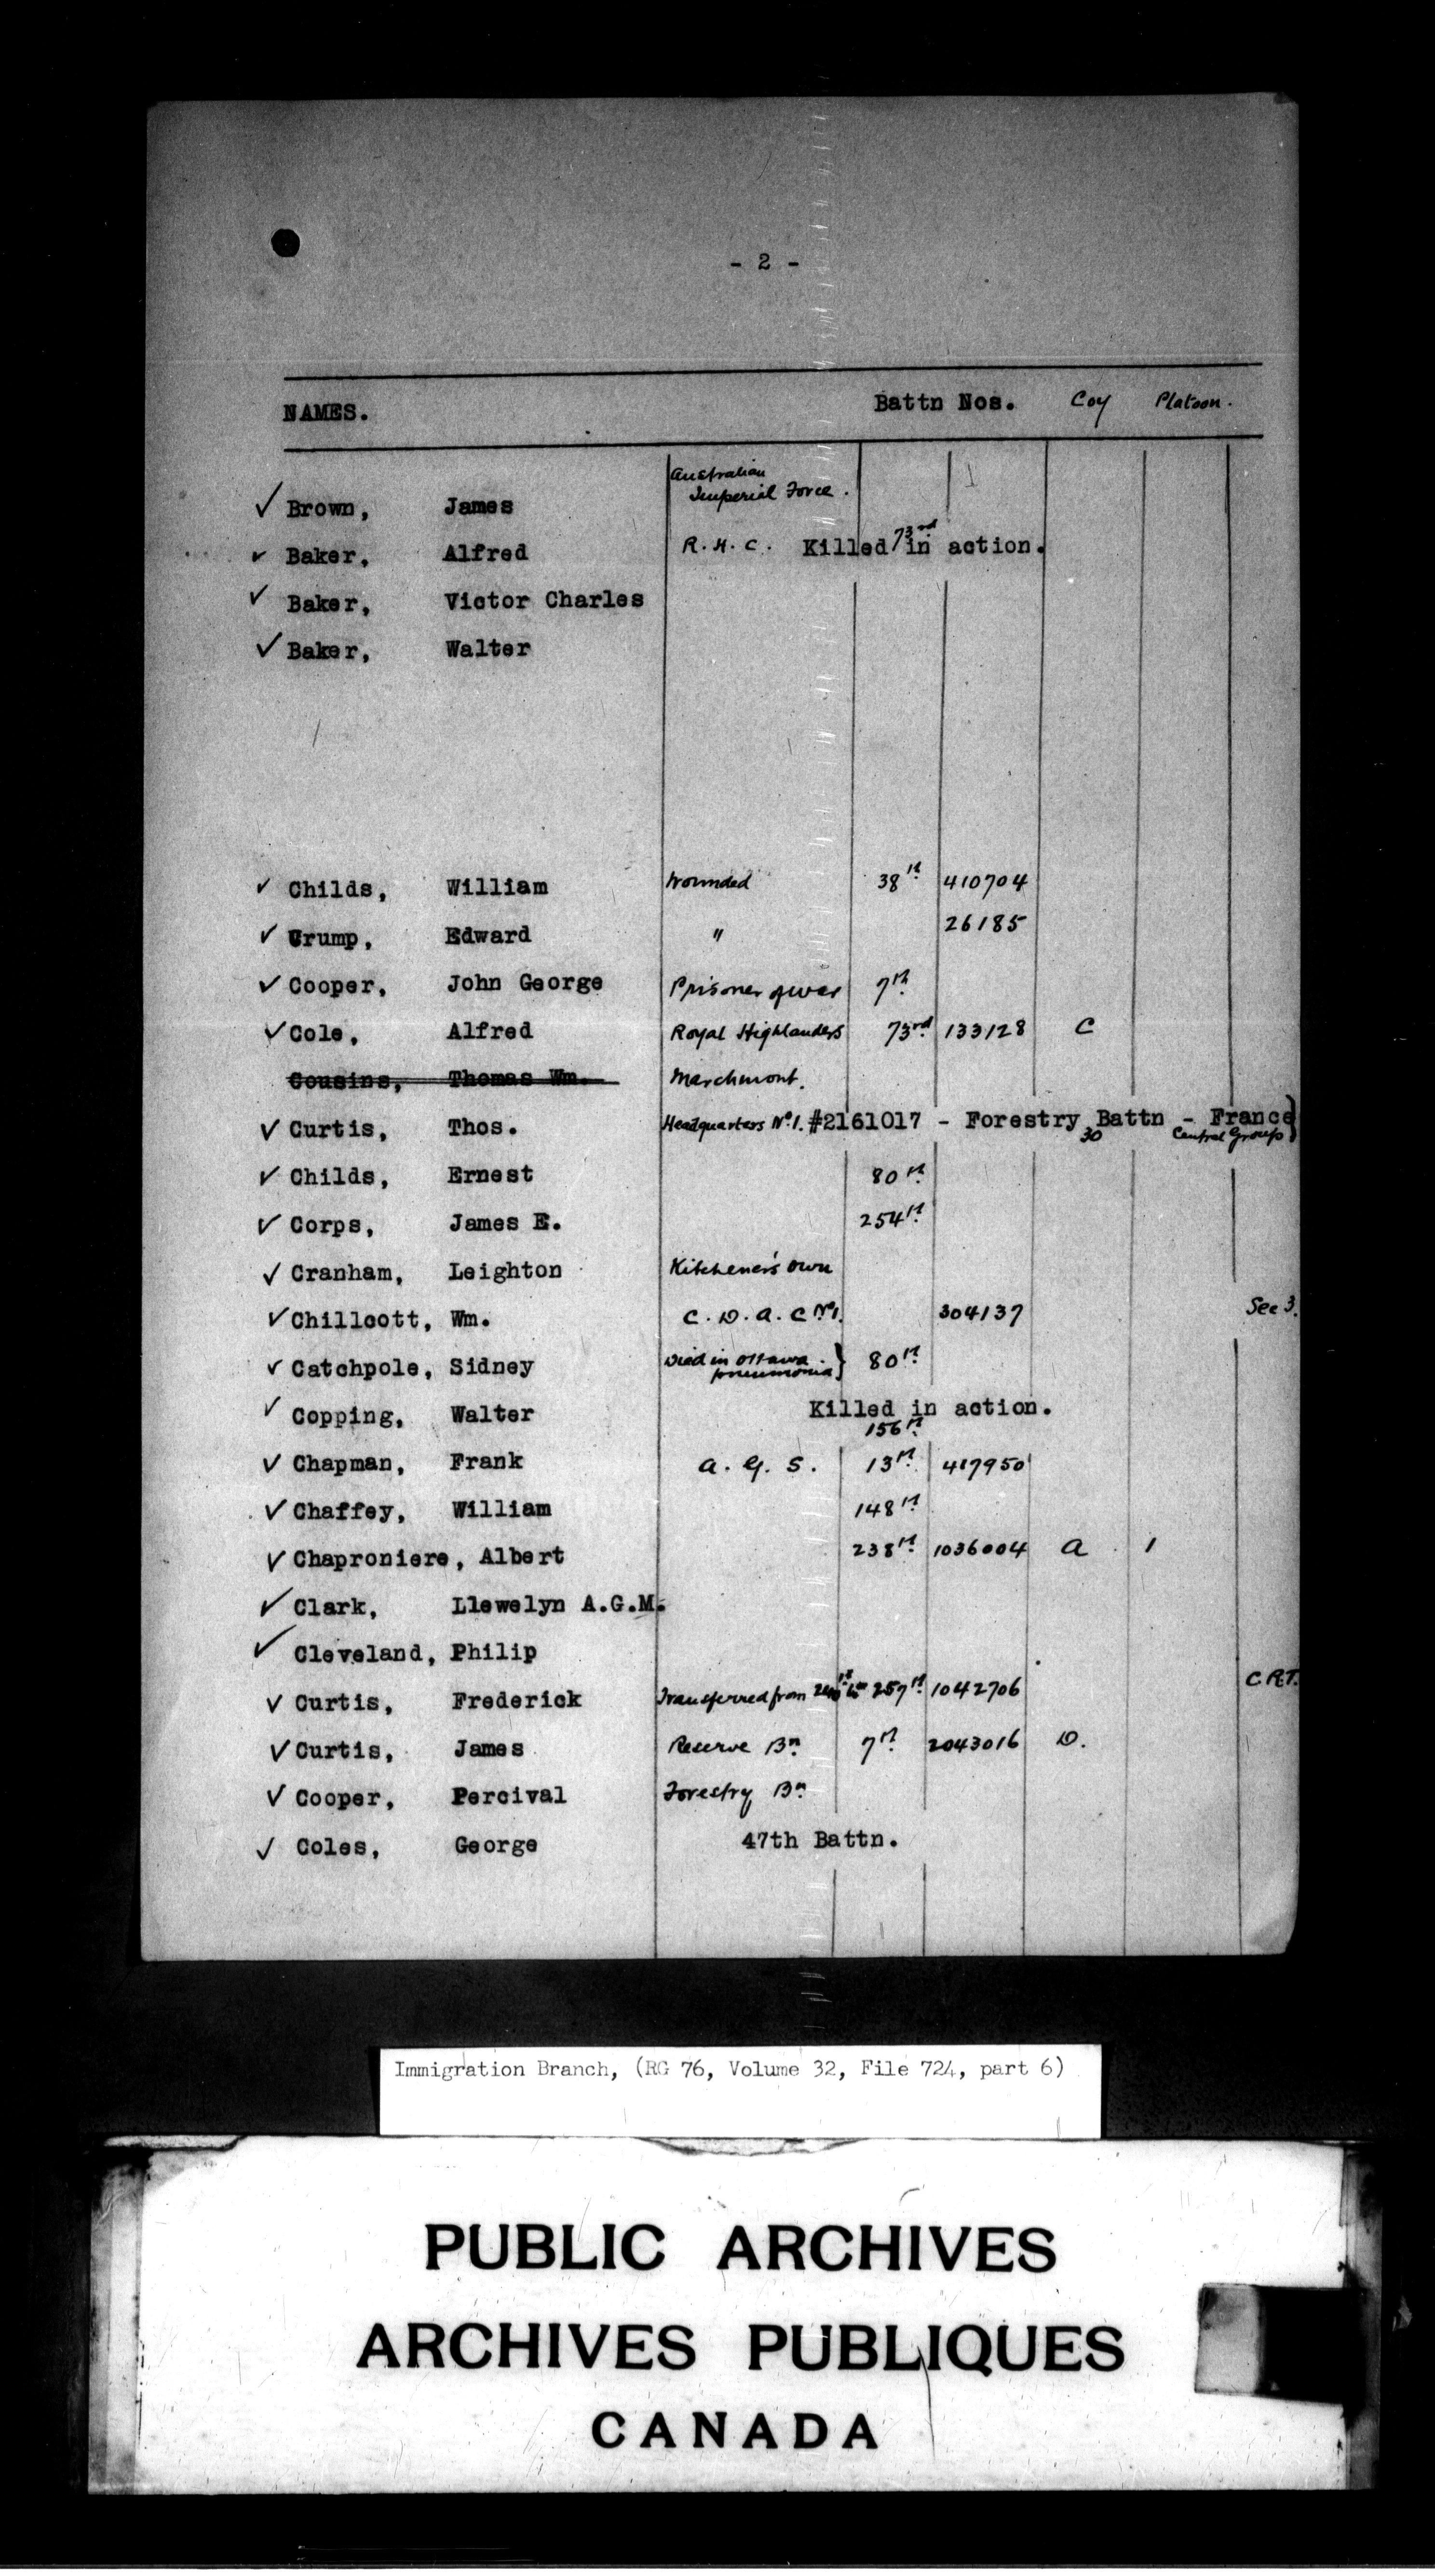 - 2 -
NAMES. Battn Nos. Coy Platoon.
Australian
✓ Brown, James Imperial Force.
✓ Baker, Alfred R.H.C. Killed in action. 73rd
✓ Baker, Victor Charles
✓ Baker, Walter
✓ Childs, William Wounded 38th 410704
✓ Crump, Edward " 26185
✓ Cooper, John George Prisoner of war 7th
✓ Cole, Alfred Royal Highlanders 73rd 133128 C
Cousins, Thomas Wm. Marchmont.
✓ Curtis, Thos. Headquarters No.1. #2161017 - Forestry Battn - France
30 Central Group
✓ Childs, Ernest 80th
✓ Corps, James E. 254th
✓ Cranham, Leighton Kitchener's Own
✓ Chillcott, Wm. C.D.A.C No1. 304137 Sec 3.
✓ Catchpole, Sidney Died in Ottawa 80th
pneumonia
✓ Copping, Walter Killed in action.
156th
✓ Chapman, Frank A.G.S. 13th 417950
✓ Chaffey, William 148th
✓ Chaproniere, Albert 238th 1036004 A 1
✓ Clark, Llewelyn A.G.M.
✓ Cleveland, Philip
✓ Curtis, Frederick Transferred from to 257th 1042706 C.R.T.
✓ Curtis, James Reserve Bn 7th 2043016 D.
✓ Cooper, Percival Forestry Bn
✓ Coles, George 47th Battn.
Immigration Branch, (RG 76, Volume 32, File 724, part 6)
PUBLIC ARCHIVES
ARCHIVES PUBLIQUES
CANADA